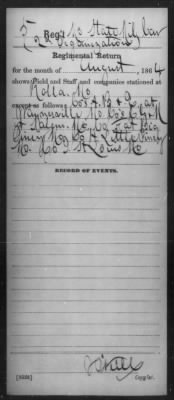 5 Reg't Mo State Mil Cav
(2 Organization)
Regimental Return
for the month of August, 1864
shows Field and Staff and companies stationed at
Rolla, Mo.
except as follows: Cos A, B & D at
Waynesville Mo Cos
at Salem Mo, Co F at Big
Piney Mo Co H Little Piney
Mo Co St Louis Mo
RECORD OF EVENTS.
Hall
Copyist.